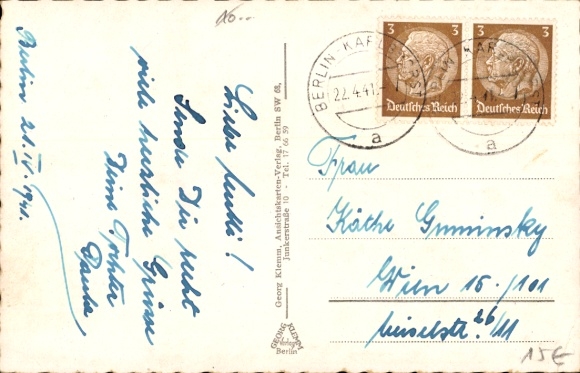 Berlin 21. IV. 1941.
Liebe Mutti!
Sende Dir recht
viele herzliche Grüsse
Deine Tochter
Georg Klemm, Ansichtskarten-Verlag, Berlin SW 68,
Junkerstraße 10 - Tel. 17 66 39
GEORG KLEMM
Verlag
Berlin
3 3
Deutsches Reich
3 3
Deutsches Reich
22.4.41.
a
a
Frau
Käthe Guminsky
Wien 15./101
26/11
15€